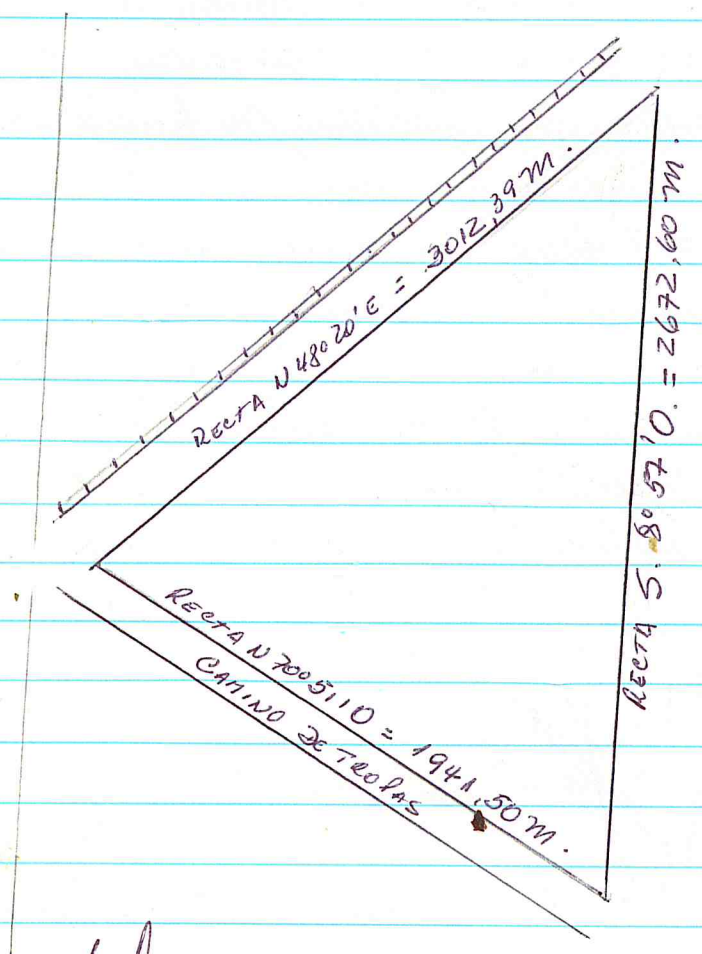 RECTA N 48º 20' E = 3012,39 m.
RECTA S. 8º 57' O. = 2672,60 m.
RECTA N 70º 51' O = 1941,50 m.
CAMINO DE TROPAS